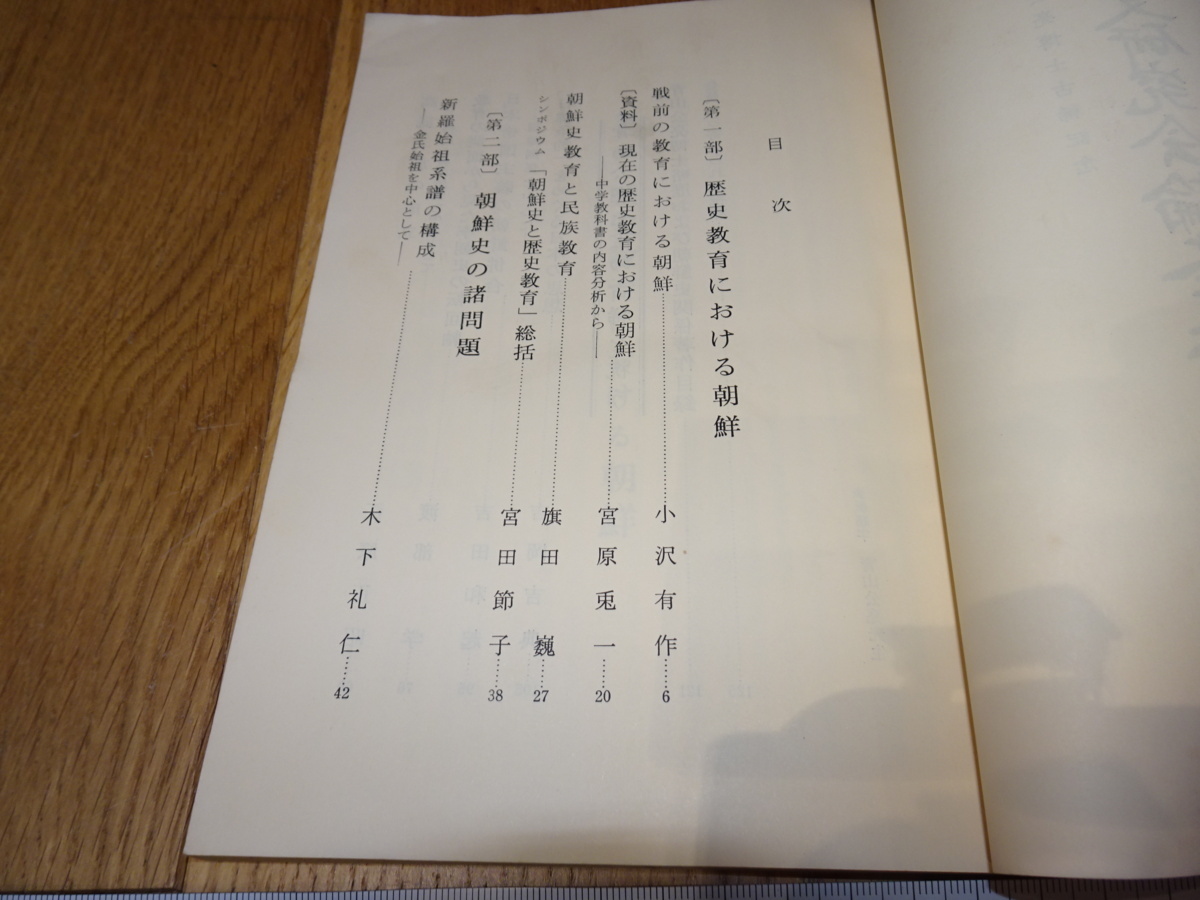 目次
〔第一部〕 歴史教育における朝鮮
戦前の教育における朝鮮……小沢有作……6
〔資料〕 現在の歴史教育における朝鮮……宮原兎一……20
――中学教科書の内容分析から――
朝鮮史教育と民族教育……旗田巍……27
シンポジウム 「朝鮮史と歴史教育」総括……宮田節子……38
〔第二部〕 朝鮮史の諸問題
新羅始祖系譜の構成……木下礼仁……42
――金氏始祖を中心として――